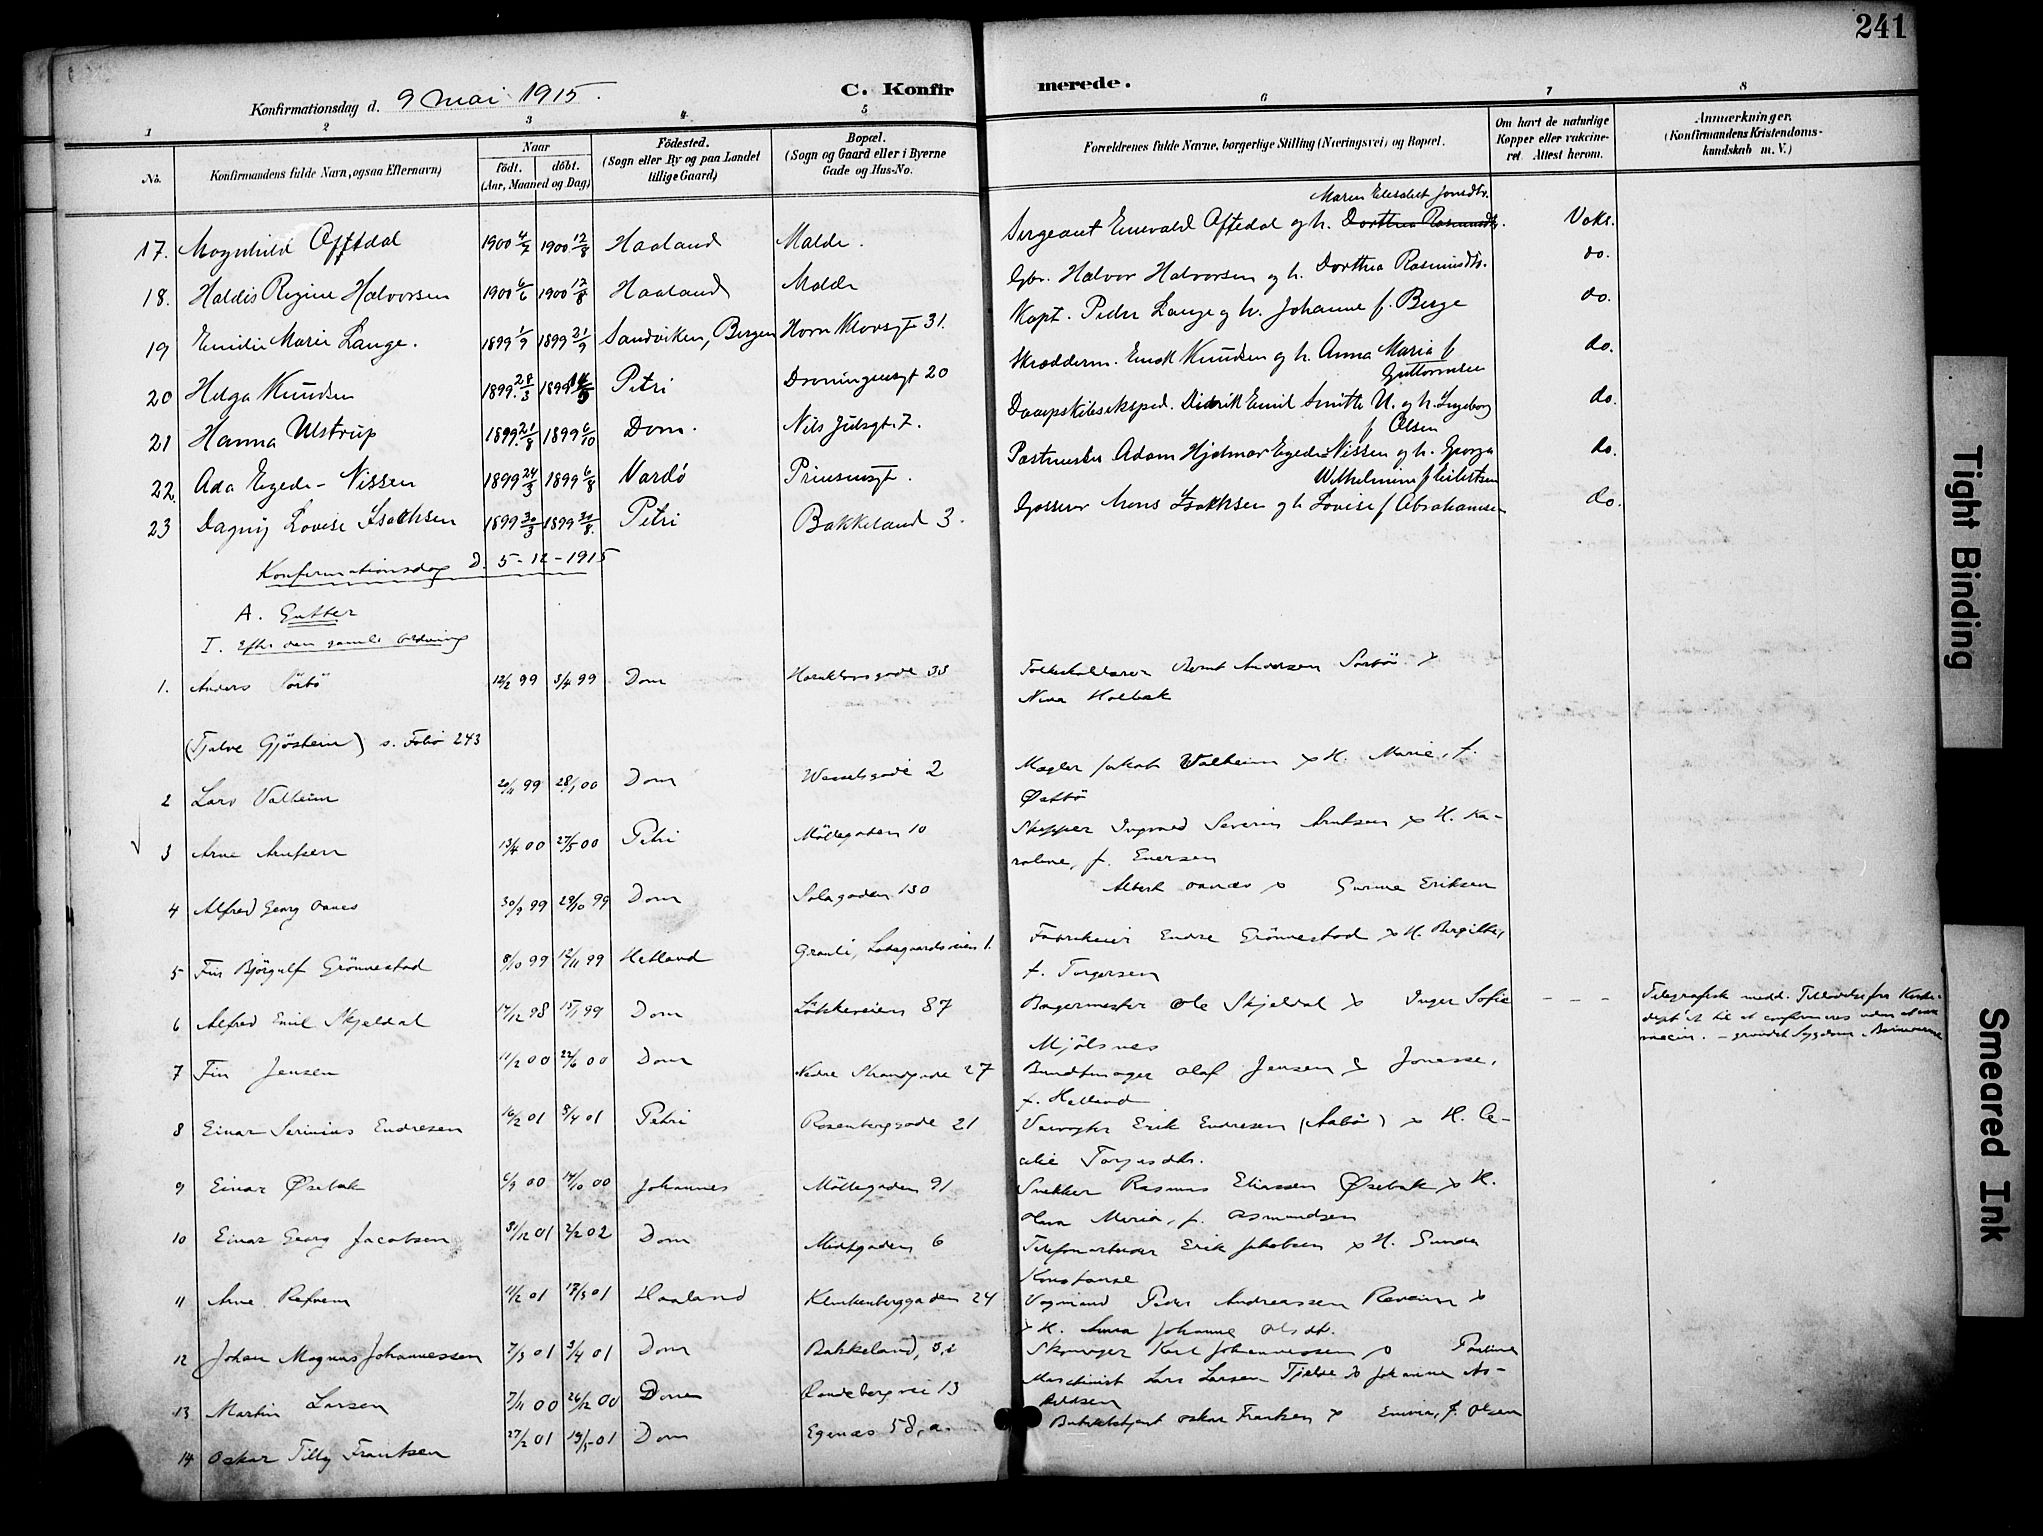 241
C. Konfirmerede.
Konfirmationsdag d. 9 Mai 1915.
1 2 3 4 5 6 7 8
No. Konfirmandens fulde Navn, ogsaa Efternavn) Naar födt. döbt. (Aar, Maaned og Dag) Födested. (Sogn eller By og paa Landet tillige Gaard) Bopæl. (Sogn og Gaard eller i Byerne Gade og Hus-No. Forældrenes fulde Navne, borgerlige Stilling (Næringsvei) og Bopæl. Om havt de naturlige Kopper eller vakcineret. Attest herom. Anmærkninger. (Konfirmandens Kristendomskundskab m. V.)
Maren Elisabet Jonsdtr.
17. Magnhild Aftedal 1900 4/7 1900 12/8 Haaland Malde. Sergeant Enevald Aftedal og h. Dorthea Rasmusdtr. Vaks.
18. Haldis Regine Halvorsen 1900 6/6 1900 12/8 Haaland Malde Gbr. Halvor Halvorsen og h. Dorthea Rasmusdtr. do.
19 Emilie Marie Lange. 1899 1/7 1899 21/9 Sandviken, Bergen Horn Klovsgt 31. Kapt. Peder Lange og h. Johanne f. Berge do.
20 Helga Knudsen 1899 28/3 1899 Petri Dronningensgt 20 Skrædderm. Knudsen og h. Anna Maria f Guttormsen do.
21 Hanna Ulstrup 1899 21/8 1899 6/10 Dom. Nils Julsgt. 7. Dampskibseksped. Didrik Emil Smitth U. og h. Ingeborg f Olsen do.
22 Ada Egede-Nissen 1899 24/3 1899 6/8 Vardö Prinsensgt. Postmester Adam Hjalmar Egede Nissen og h. Georga Wilhelmine f do.
23 Dagny Lovise Isakksen 1899 30/3 1899 20/8. Petri Bakkeland 3. Mons Isakksen og h Lovise f Abrahamsen do.
Konfirmationsdag D. 5-12-1915
A. Gutter
I. Efter den gamle ordning
1. Anders Sörbö 12/2 99 3/4 99 Dom Haraldsgade 33 Bernt Andersen Sörbö x
Nina Holbæk
(Tjalve Gjöstein) s. Folio 243
2 Lars Valheim 20/11 99 28/1 00 Dom Wesselsgade 2 Mægler Jakob Valheim x H. Marie, f.
Östbö
3 Arne Arntsen 13/4 00 27/5 00 Petri Möllegaden 10 Skipper Ingvald Severin Arntsen x H. Ka-
roline, f. Evensen
4 Alfred Georg Aanes 30/9 99 29/10 99 Dom Solagaden 130 Albert Aanæs x Gurine Eriksen
5 Fin Björgulf Grönnestad 8/10 99 12/11 99 Hetland Granli, Ladegaardsveien 1. Fabrikeier Endre Grönnestad x H. Birgitte,
f. Torgersen
6 Alfred Emil Skjeldal 17/12 98 15/1 99 Dom Lökkeveien 87 Bagermester Ole Skjeldal x Inger Sofie - - - Telegrafisk medd. Tilladelse fra Kirke-
Mjölsnes dept't til at confirmeres uden
- grundet Sygdom
7 Fin Jensen 11/2 00 22/6 00 Dom Nedre Strandgade 27 Bundtmager Olaf Jensen x Jonasse,
f. Helland
8 Einar Serinius Endresen 16/2 01 8/4 01 Petri Rosenberggade 21 Erik Endresen (Aabö) x H. Ce-
celie Torgersdtr.
9 Einar Ösebak 6/9 00 14/10 00 Johannes Möllegaden 91 Snekker Rasmus Eliassen Ösebak x H.
Maria, f. Osmundsen
10 Einar Georg Jacobsen 31/12 01 2/2 02 Dom Midtgaden 6 Telefonarbeider Erik Jakobsen x H. Gunda
Konstanse
11 Arne Refvem 11/2 01 17/3 01 Haaland Klinkenberggaden 24 Vognmand Peder Andreassen Reveim x
x H. Anna Johanne Olsdtr.
12 Johan Magnus Johannessen 7/3 01 3/4 01 Dom Bakkeland, 3, Skomager Karl Johannessen x Pauline
13 Martin Larsen 7/11 00 26/12 00 Dom Randebergvei 13 Maschinist Lars Larsen Tjelve x Johanne As-
kildsen
14 Oskar Tilly Frantsen 27/2 01 19/5 01 Dom Egenæs 58, a. Oskar Frantsen x Emma, f. Olsen
Tight Binding
Smeared Ink